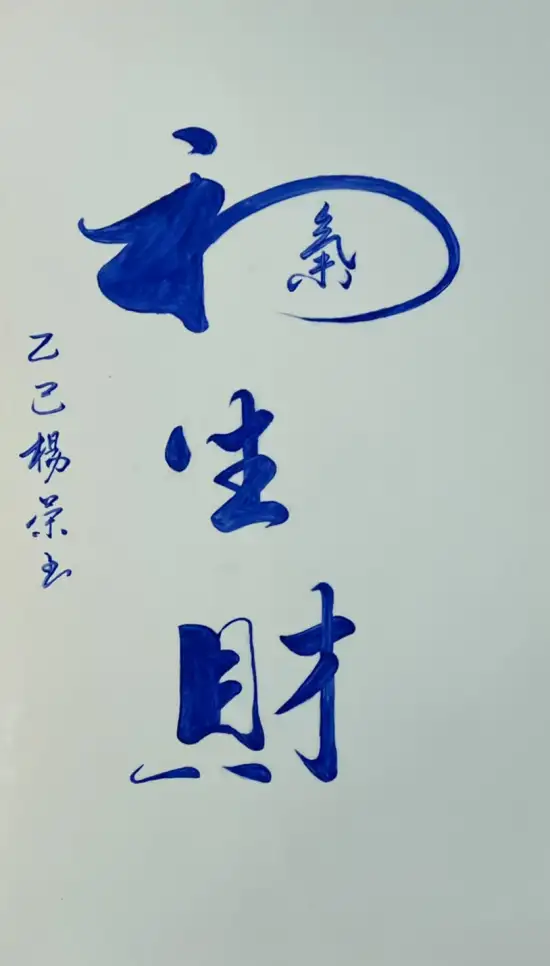 和氣生財
乙巳楊榮玉